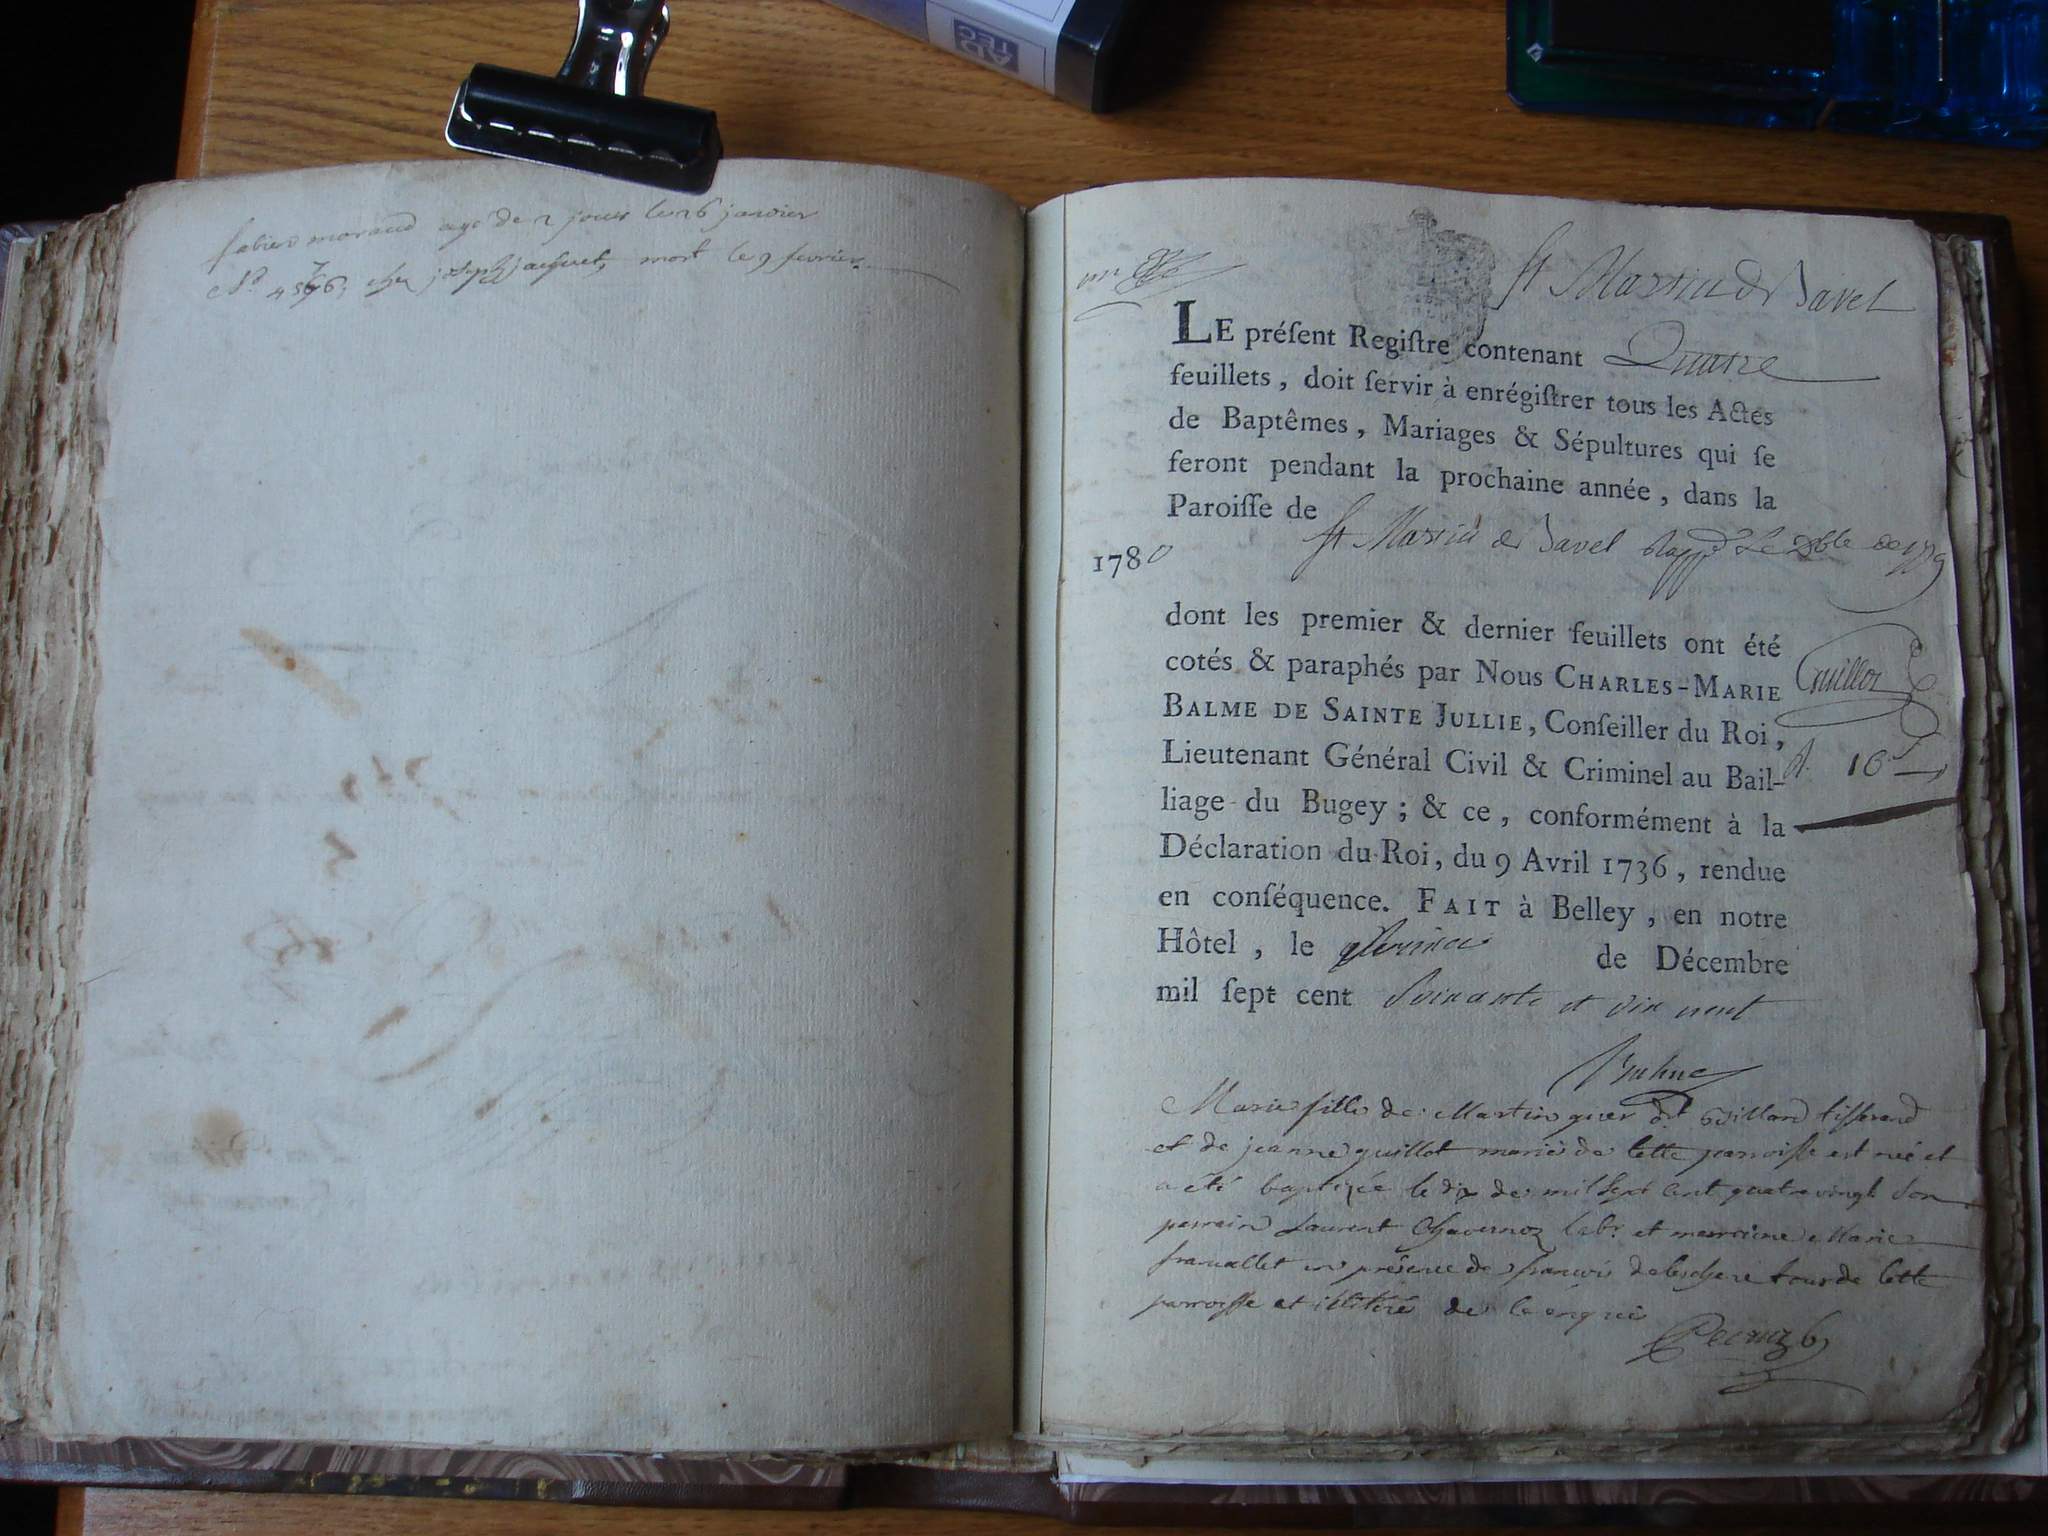 AB
TEC
fabien moraud agé de 2 jours le 26 janvier
chez joseph jacquet, mort le 9 fevrier
St Martin de Bavel
LE préſent Regiſtre contenant Quatre
feuillets, doit ſervir à enrégiſtrer tous les Actes
de Baptêmes, Mariages & Sépultures qui ſe
feront pendant la prochaine année, dans la
Paroiſſe de
St Martin de Bavel
1780
dont les premier & dernier feuillets ont été
cotés & paraphés par Nous CHARLES-MARIE
BALME DE SAINTE JULLIE, Conſeiller du Roi,
Lieutenant Général Civil & Criminel au Bail-
liage du Bugey ; & ce, conformément à la
Déclaration du Roi, du 9 Avril 1736, rendue
en conſéquence. FAIT à Belley, en notre
Hôtel, le premier de Décembre
mil ſept cent Soixante et dix neuf
Balme
Cruilloz
16 s
Marie fille de Martin guer dt Villard tisserand
et de jeanne guillot mariés de cette parroisse est née et
a été baptizée le dix de mil sept cent quatre vingt Son
parrain Laurent Chavernoz labr et marraine Marie
françallet en présence de françois delaschere tous de cette
parroisse et illitéré de ce enquis